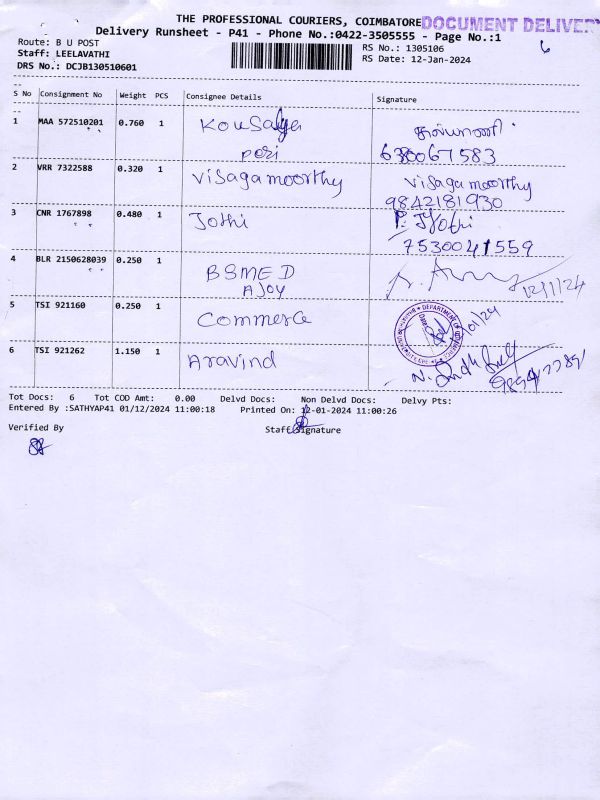 THE PROFESSIONAL COURIERS, COIMBATORE DOCUMENT DELIVER
Delivery Runsheet - P41 - Phone No.:0422-3505555 - Page No.:1
Route: B U POST
RS No.: 1305106
6
Staff: LEELAVATHI
RS Date: 12-Jan-2024
DRS No.: DCJB130510601
S No Consignment No Weight PCS Consignee Details Signature
1 MAA 572510201 0.760 1 Kousalya
630067583
2 VRR 7322588 0.320 1 Visagamoorthy Visagamoorthy
9842181930
3 CNR 1767898 0.480 1 Jothi P. Jyothi
7530041559
4 BLR 2150628039 0.250 1 BSMED
AJOY
12/1/24
5 TSI 921160 0.250 1 Commerce
DEPARTMENT OF
6 TSI 921262 1.150 1 Aravind
Tot Docs: 6 Tot COD Amt: 0.00 Delvd Docs: Non Delvd Docs: Delvy Pts:
Entered By :SATHYAP41 01/12/2024 11:00:18 Printed On: 12-01-2024 11:00:26
Verified By Staff Signature